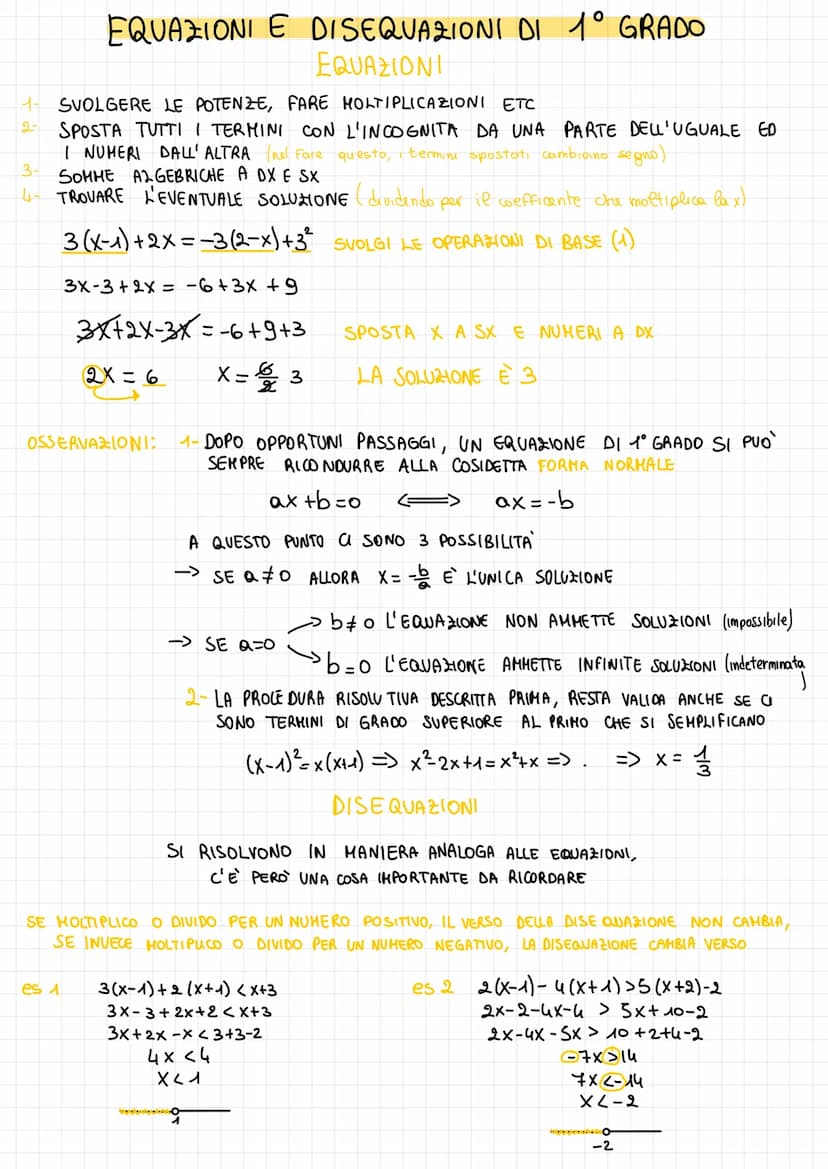 EQUAZIONI E DISEQUAZIONI DI 1° GRADO
EQUAZIONI
1- SVOLGERE LE POTENZE, FARE MOLTIPLICAZIONI ETC
2- SPOSTA TUTTI I TERMINI CON L'INCOGNITA DA UNA PARTE DELL'UGUALE ED
I NUMERI DALL'ALTRA (nel fare questo, i termini spostati cambiano segno)
3- SOMME ALGEBRICHE A DX E SX
4- TROVARE L'EVENTUALE SOLUZIONE (dividendo per il coefficante che moltiplica la x)
3(x-1)+2x = -3(2-x)+3² SVOLGI LE OPERAZIONI DI BASE (1)
3x-3+2x = -6+3x+9
3x+2x-3x = -6+9+3 SPOSTA X A SX E NUMERI A DX
2x = 6 x = 6/2 3 LA SOLUZIONE È 3
OSSERVAZIONI: 1- DOPO OPPORTUNI PASSAGGI, UN EQUAZIONE DI 1° GRADO SI PUÒ
SEMPRE RICONDURRE ALLA COSIDETTA FORMA NORMALE
ax+b=0 <=> ax=-b
A QUESTO PUNTO CI SONO 3 POSSIBILITÀ
-> SE a≠0 ALLORA X = -b/a È L'UNICA SOLUZIONE
-> SE a=0
-> b≠0 L'EQUAZIONE NON AMMETTE SOLUZIONI (impossibile)
-> b=0 L'EQUAZIONE AMMETTE INFINITE SOLUZIONI (indeterminata)
2- LA PROCEDURA RISOLUTIVA DESCRITTA PRIMA, RESTA VALIDA ANCHE SE CI
SONO TERMINI DI GRADO SUPERIORE AL PRIMO CHE SI SEMPLIFICANO
(x-1)² = x(x+1) => x²-2x+1 = x²+x => . => x = 1/3
DISEQUAZIONI
SI RISOLVONO IN MANIERA ANALOGA ALLE EQUAZIONI,
C'È PERÒ UNA COSA IMPORTANTE DA RICORDARE
SE MOLTIPLICO O DIVIDO PER UN NUMERO POSITIVO, IL VERSO DELLA DISEQUAZIONE NON CAMBIA,
SE INVECE MOLTIPLICO O DIVIDO PER UN NUMERO NEGATIVO, LA DISEQUAZIONE CAMBIA VERSO
es 1 3(x-1)+2(x+1) < x+3
3x-3+2x+2 < x+3
3x+2x-x < 3+3-2
4x < 4
x < 1
1
es 2 2(x-1)-4(x+1) > 5(x+2)-2
2x-2-4x-4 > 5x+10-2
2x-4x-5x > 10+2+4-2
-7x > 14
7x < -14
x < -2
-2